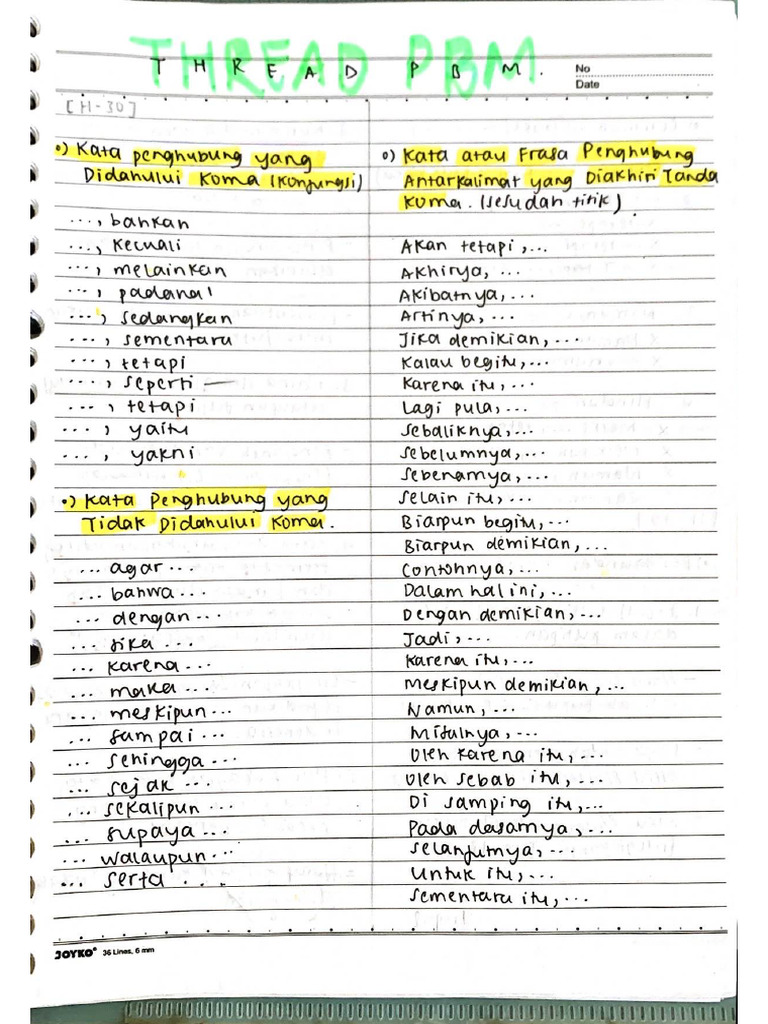 THREAD PBM.
No
Date
[H-30]
o) Kata penghubung yang
Didahului Koma (Konjungsi)
..., bahkan
..., kecuali
..., melainkan
..., padahal
..., sedangkan
..., sementara
..., tetapi
..., seperti
..., tetapi
..., yaitu
..., yakni
o) Kata Penghubung yang
Tidak Didahului Koma.
... agar ...
... bahwa ...
... dengan ...
... jika ...
... karena ...
... maka ...
... meskipun ...
... sampai ...
... sehingga ...
... sejak ...
... sekalipun ...
... supaya ...
... walaupun ...
... serta ...
o) Kata atau Frasa Penghubung
Antarkalimat yang Diakhiri Tanda
Koma. (sesudah titik)
Akan tetapi, ...
Akhirya, ...
Akibatnya, ...
Artinya, ...
Jika demikian, ...
Kalau begitu, ...
Karena itu, ...
Lagi pula, ...
Sebaliknya, ...
Sebelumnya, ...
Sebenarnya, ...
Selain itu, ...
Biarpun begitu, ...
Biarpun demikian, ...
Contohnya, ...
Dalam hal ini, ...
Dengan demikian, ...
Jadi, ...
Karena itu, ...
Meskipun demikian, ...
Namun, ...
Misalnya, ...
Oleh karena itu, ...
Oleh sebab itu, ...
Di samping itu, ...
Pada dasarnya, ...
Selanjutnya, ...
Untuk itu, ...
Sementara itu, ...
JOYKO 36 Lines, 6 mm